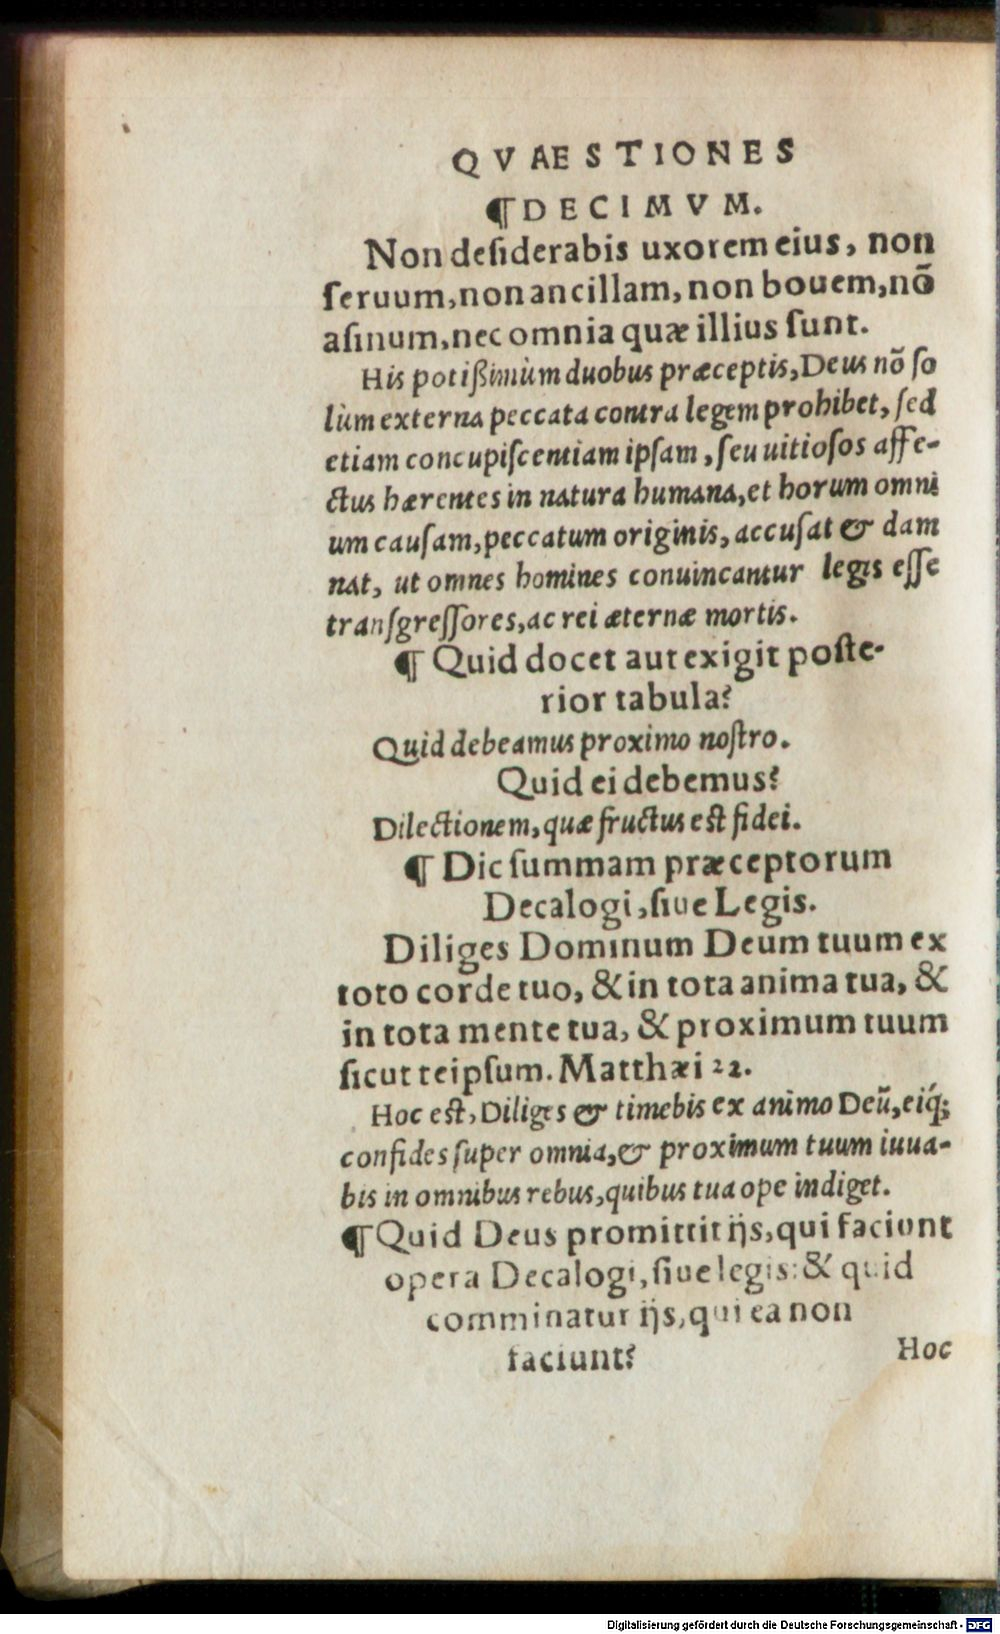 QVAESTIONES
¶DECIMVM.
Non deſiderabis uxorem eius, non
ſeruum, non ancillam, non bouem, nõ
aſinum, nec omnia quæ illius ſunt.
His potißimùm duobus præceptis, Deus nõ ſo
lùm externa peccata contra legem prohibet, ſed
etiam concupiſcentiam ipſam, ſeu uitioſos affe-
ctus hærentes in natura humana, et horum omni
um cauſam, peccatum originis, accuſat & dam
nat, ut omnes homines conuincantur legis eſſe
tranſgreſſores, ac rei æternæ mortis.
¶ Quid docet aut exigit poſte-
rior tabula?
Quid debeamus proximo noſtro.
Quid ei debemus?
Dilectionem, quæ fructus eſt fidei.
¶ Dic ſummam præceptorum
Decalogi, ſiue Legis.
Diliges Dominum Deum tuum ex
toto corde tuo, & in tota anima tua, &
in tota mente tua, & proximum tuum
ſicut teipſum. Matthæi 22.
Hoc eſt, Diliges & timebis ex animo Deũ, eiq́;
confides ſuper omnia, & proximum tuum iuua-
bis in omnibus rebus, quibus tua ope indiget.
¶Quid Deus promittit ijs, qui faciunt
opera Decalogi, ſiue legis: & quid
comminatur ijs, qui ea non
faciunt?
Hoc
Digitalisierung gefördert durch die Deutsche Forschungsgemeinschaft - DFG